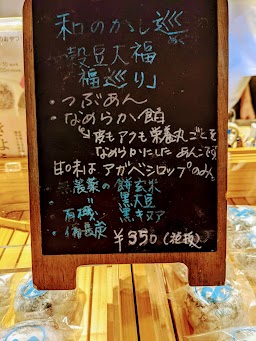 和のかし巡
めぐ
穀豆大福
福巡り」
・つぶあん
・なめらか餡
皮もアクも栄養丸ごとを
なめらかにしたあんこです
甘味はアガベシロップのみ。
無農薬の餅玄米
〃 黒大豆
有機 黒キヌア
・備長炭
￥350(税抜)